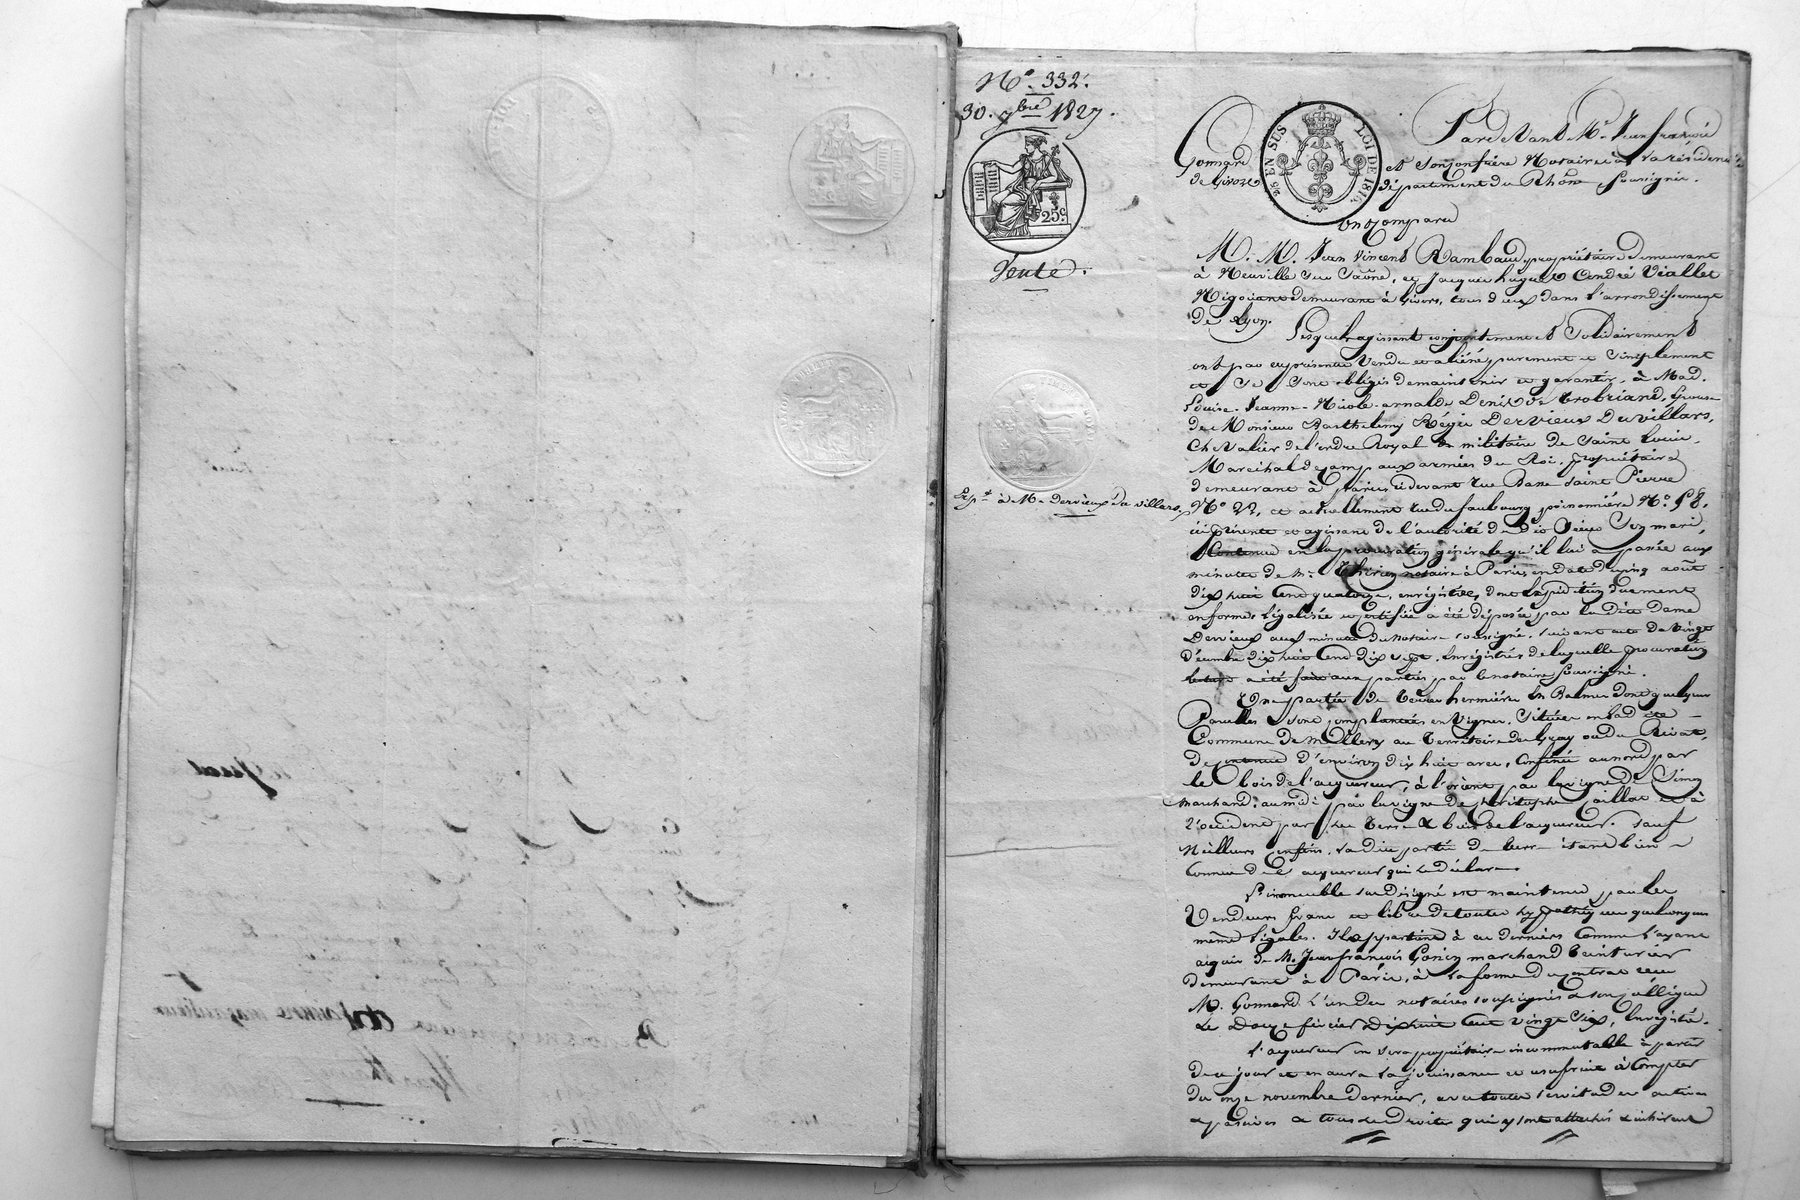 N.° 332.
30. 7bre 1827.
25.c
Vente.
Exp.on à M. Dervieux du villars,
25 EN SUS
LOI DE 1816.
Pardevant M.e Jean françois
Gonnard et son confrère Notaires à la résidence
de Givors, département du Rhône, soussignés.
ont Comparu
M. M. Jean Vincent Rambaud propriétaire demeurant
à Neuville sur Saône, et Jacques hugues André Viallet
Négociant demeurant à Givors, tous deux dans l'arrondissement
de Lyon.
Lesquels agissant conjointement et Solidairement
ont par ces présentes Vendu et aliéné, purement et simplement
et se sont obligés de maintenir et garantir, à Mad.
Louise-Jeanne-Nicole-arnalde Denis de Trobriand, Epouse
de Monsieur Barthelemy Régis Dervieux Du villars,
Chevalier de l'ordre Royal et militaire de Saint Louis,
Maréchal de camp aux armées du Roi, propriétaire
demeurant à Paris, ci devant rue Basse Saint Pierre
N.° 22, et actuellement rue du faubourg poissonnière N.° 58.
ici présente et agissant de l'autorité du dit Sieur Son mari,
Contenue en la procuration générale qu'il lui a passée aux
minutes de M.e Thirion notaire à Paris, en date du cinq août
dix huit Cent quatorze, enregistrée, dont l'expédition duement
en forme, légalisée et certifiée a été déposée par la dite Dame
Dervieux aux minutes du notaire soussigné, suivant acte du vingt
décembre dix huit Cent dix sept, Enregistré, de laquelle procuration
lecture a été faite aux parties par le notaire soussigné.
Une partie de Terre hermière en Balmes dont quelques
Parcelles sont complantées en vignes, située en la dite
Commune de Millery au Territoire du Gray ou du Rivat,
de contenue d'environ dix huit ares, Confinée au nord par
le bois de l'acquereur, à l'orient par la vigne de Simon
marchand; au midi par la vigne de christophe Paillot et à
l'occident par les terre & bois de l'acquereur. Sauf
Meilleurs confins, la dite partie de terre étant bien
Connue de l'acquereur qui le déclare.
L'immeuble sus désigné est maintenu par les
Vendeurs franc et libre de toutes hypothèques quelconques
même légales. Il appartient à ces derniers Comme l'ayant
acquis de M. Jean françois Gonin marchand teinturier
demeurant à Paris, à la forme du contrat reçu
M. Gonnard l'un des notaires soussignés & son collègue
Le Douze février dix huit Cent vingt six, Enregistré.
l'acquereur en sera propriétaire incommutable à partir
de ce jour et en aura la jouissance et usufruit à Compter
du onze novembre dernier, avec toutes servitudes actives
& passives & tous les droits qui y sont attachés & inhérent